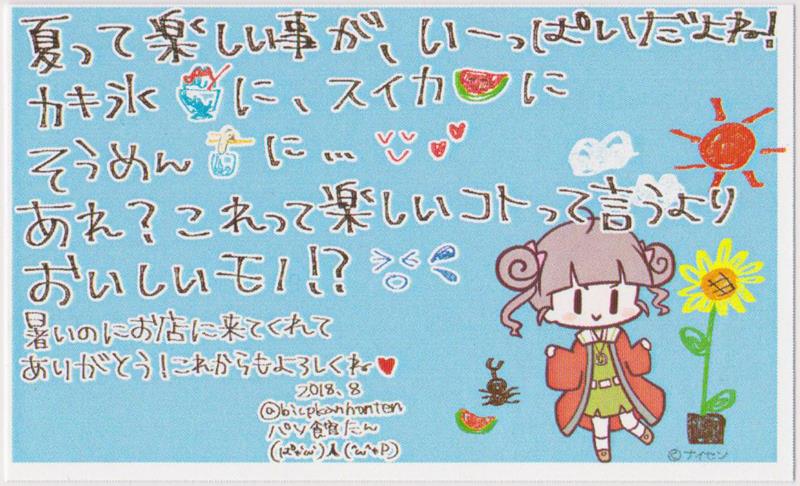 夏って楽しい事が、いーっぱいだよね!
カキ氷に、スイカに
そうめんに...
あれ?これって楽しいコトって言うより
おいしいモノ!?
暑いのにお店に来てくれて
ありがとう!これからもよろしくね
2018.8
@bicpkanhonten
パソ館たん
©ナイセン